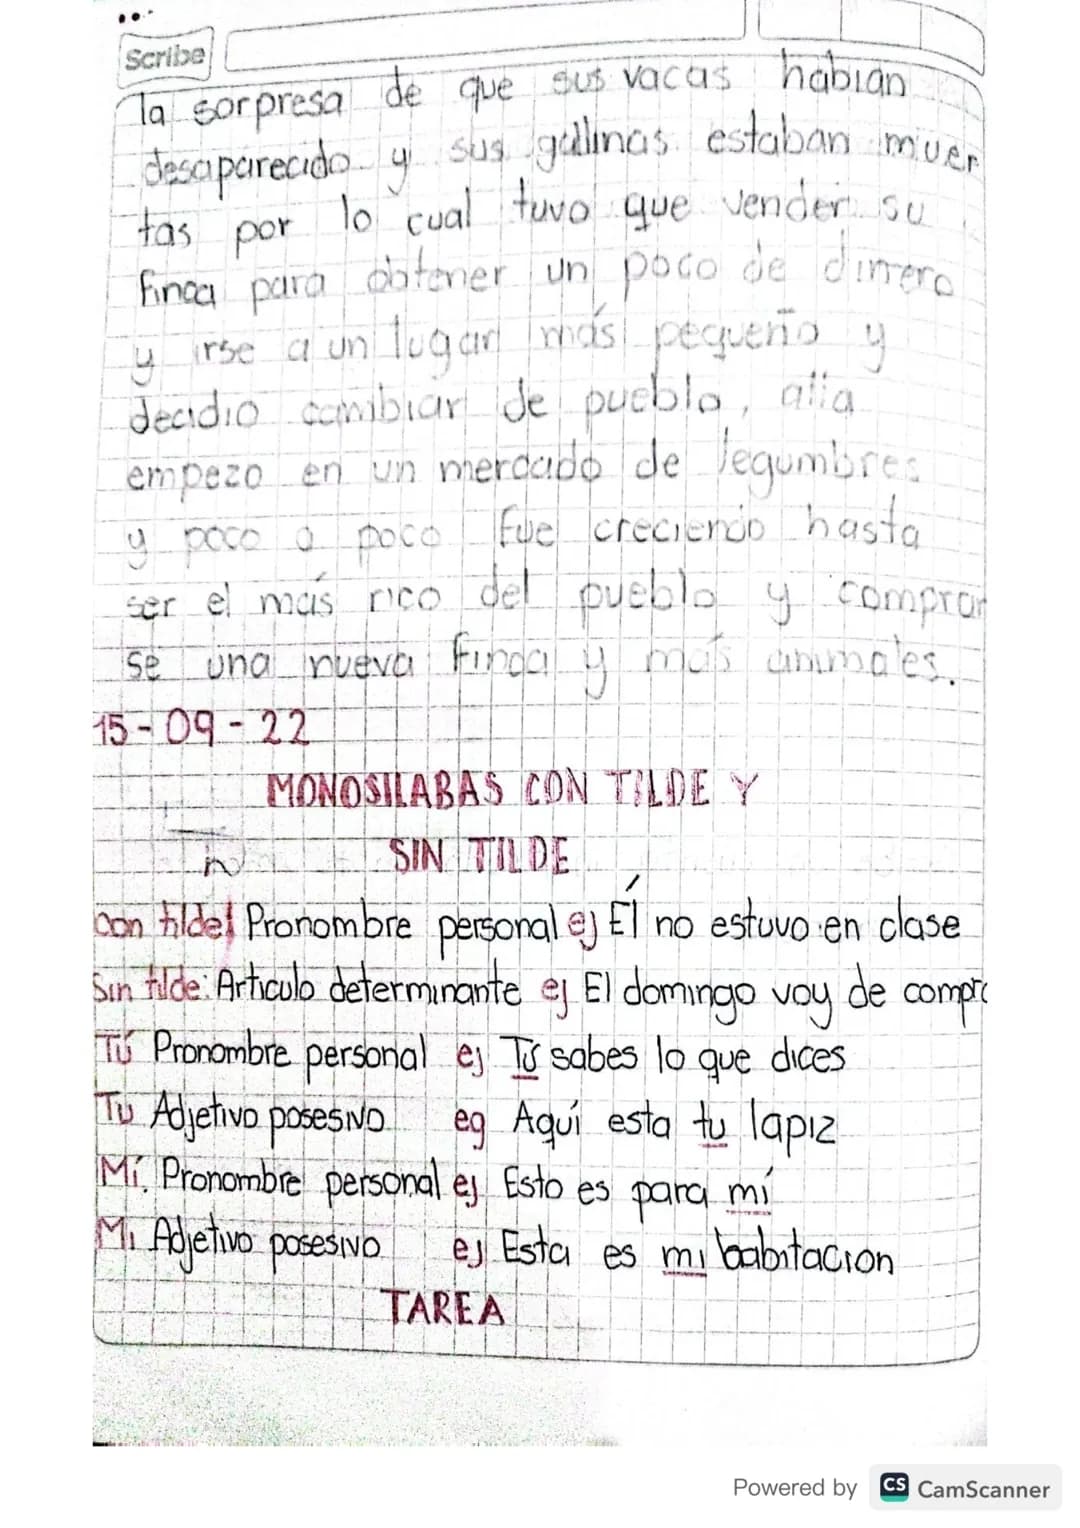 Scribe
la sorpresa de que sus vacas habian
desaparecido y sus gallinas estaban muer
tas por lo cual tuvo que vender su
finca para obtener un poco de dinero
y irse a un lugar más pequeño y
decidio cambiar de pueblo, alla
empezo en un mercado de legumbres
y poco a poco fue creciendo hasta
ser el más rico del pueblo y comprar
se una nueva finca y más animales.
15-09-22
MONOSILABAS CON TILDE Y
SIN TILDE
Con tilde: Pronombre personal ej Él no estuvo en clase
Sin tilde: Articulo determinante ej El domingo voy de compra
Tú Pronombre personal ej Tú sabes lo que dices
Tu Adjetivo posesivo eg Aquí esta tu lapiz
Mí. Pronombre personal ej Esto es para mí
Mi Adjetivo posesivo ej Esta es mi habitacion
TAREA
Powered by CS CamScanner